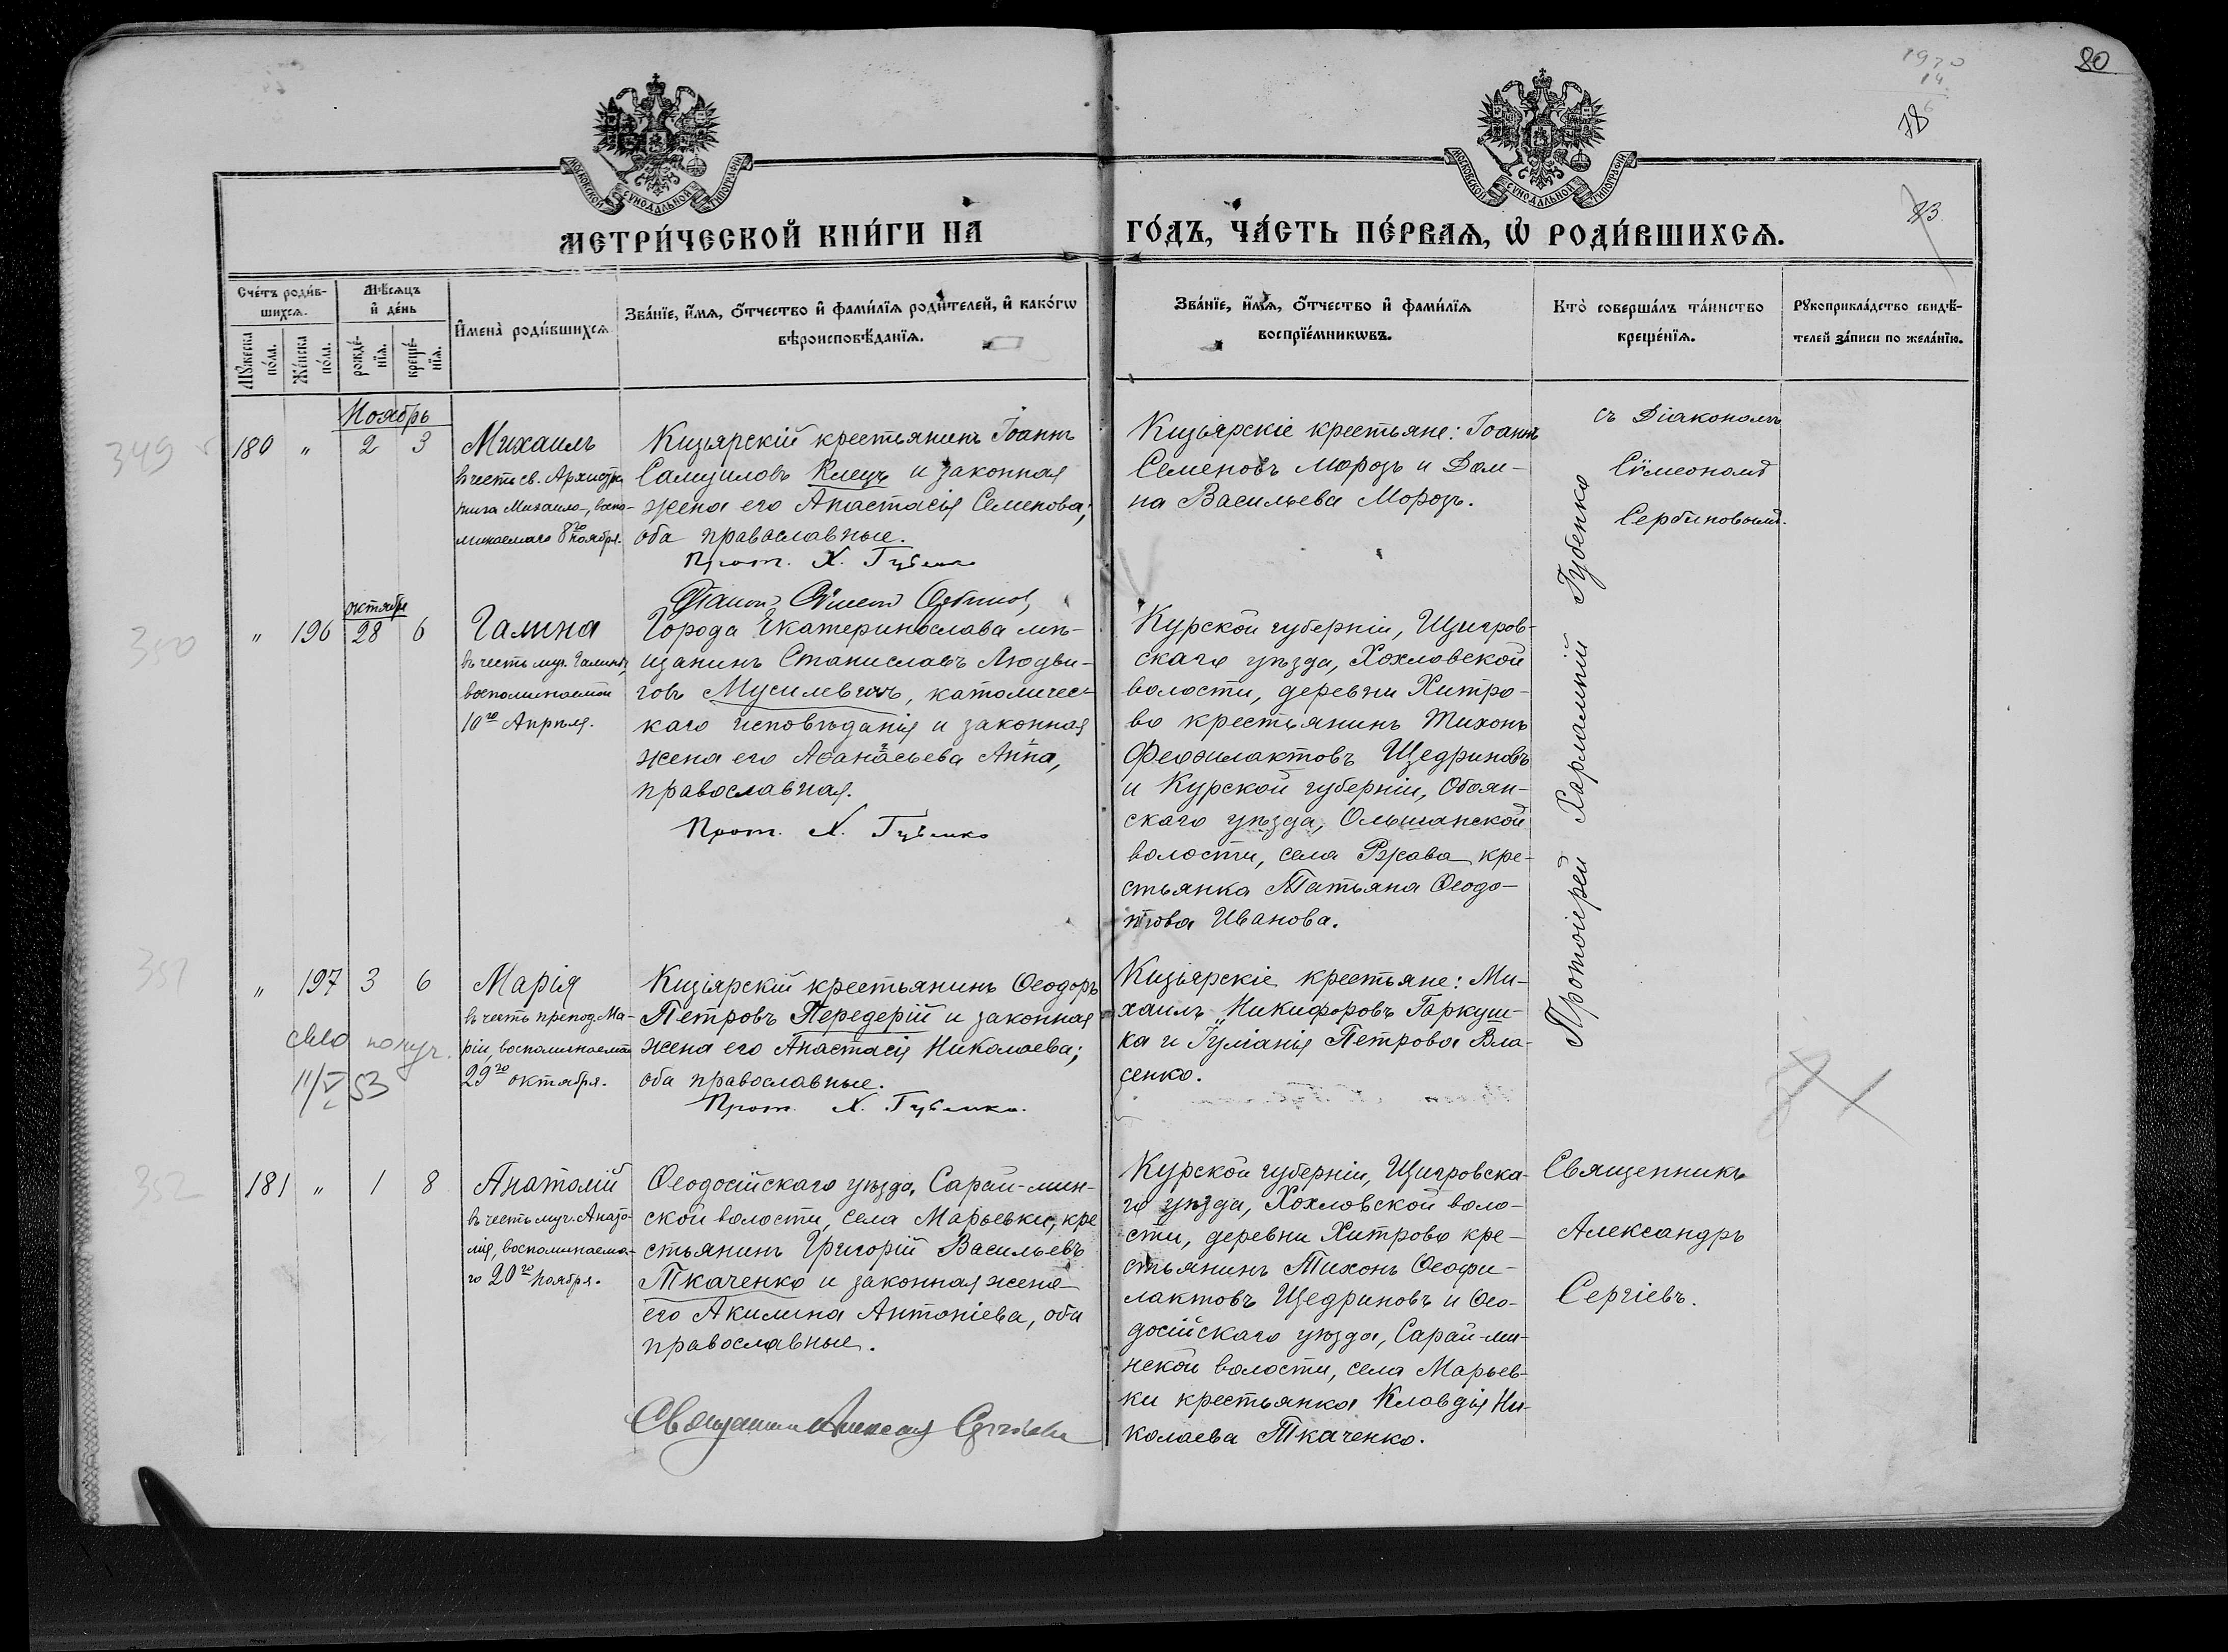 80
1920
14
6
78
73.
МОСКОВСКОЙ СѴНОДАЛЬНОЙ ТИПОГРАФІИ
МОСКОВСКОЙ СѴНОДАЛЬНОЙ ТИПОГРАФІИ
МЕТРИ́ЧЕСКОЙ КНИ́ГИ НА
ГО́ДЪ, ЧА́СТЬ ПЕ́РВАѦ, Ѡ҆ РОДИ́ВШИХСѦ.
Сче́тъ роди́в-
шихсѧ.
Мꙋ́жеска
по́ла.
Же́нска
по́ла.
Мѣ́сѧцъ
и҆ де́нь
рожде́-
нїѧ.
креще́-
нїѧ.
И҆мена̀ роди́вшихсѧ
Зва́нїе, и҆́мѧ, ѻ҆́тчество и҆ фами́лїѧ роди́телей, и҆ како́гѡ
вѣроисповѣ́данїѧ.
Зва́нїе, и҆́мѧ, ѻ҆́тчество и҆ фами́лїѧ
воспрїе́мникѡвъ.
Кто̀ соверша́лъ та́инство
креще́нїѧ.
Рꙋкоприкла́дство свидѣ́-
телей за́писи по жела́нїю.
Ноябрь
349
180 " 2 3
Михаилъ
въ честь св. Архистра
тига Михаила, воспо-
минаемаго 8го ноября.
Кизіярскій крестьянинъ Іоаннъ
Самуиловъ Клецъ и законная
жена его Анастасія Семенова;
оба православные.
Прот. Х. Губенко
Кизіярскіе крестьяне: Іоаннъ
Семеновъ Морозъ и Дом-
на Васильева Морозъ.
Протоіерей Харлампій Губенко
съ Діакономъ
Сѵмеономъ
Сербиновымъ.
350
октября
" 196 28 6
Галина
въ честь муч. Галины,
воспоминаемой
10го Апрѣля.
Города Екатеринослава мѣ-
щанинъ Станиславъ Людви-
говъ Мусилевичъ, католичес-
каго исповѣданія и законная
жена его Аѳанасьева Анна,
православная.
Прот. Х. Губенко
Курской губерніи, Щигров-
скаго уѣзда, Хохловской
волости, деревни Хитро-
во крестьянинъ Тихонъ
Феофилактовъ Щедриновъ
и Курской губерніи, Обоян-
скаго уѣзда, Ольшанской
волости, села Ржава кре-
стьянка Татьяна Ѳеодо-
това Иванова.
351
" 197 3 6
свид получ.
11/V 53
Марія
въ честь препод. Ма-
ріи, воспоминаемой
29го октября.
Кизіярскій крестьянинъ Ѳеодоръ
Петровъ Передерій и законная
жена его Анастасія Николаева;
оба православные.
Прот. Х. Губенко.
Кизіярскіе крестьяне: Ми-
хаилъ Никифоровъ Гаркуш-
ка и Іуліанія Петрова Вла-
сенко.
352
181 " 1 8
Анатолій
въ честь муч. Анато-
лія, воспоминаема-
го 20го ноября.
Ѳеодосійскаго уѣзда, Сарай-мин-
ской волости, села Марьевки, кре
стьянинъ Григорій Васильевъ
Ткаченко и законная жена
его Акилина Антоніева, оба
православные.
Священникъ Александръ Сергіевъ
Курской губерніи, Щигровска-
го уѣзда, Хохловской воло-
сти, деревни Хитрово кре-
стьянинъ Тихонъ Ѳеофи-
лактовъ Щедриновъ и Ѳео-
досійскаго уѣзда, Сарай-ми-
нской волости, села Марьев-
ки крестьянка Клавдія Ни-
колаева Ткаченко.
Священникъ
Александръ
Сергіевъ.